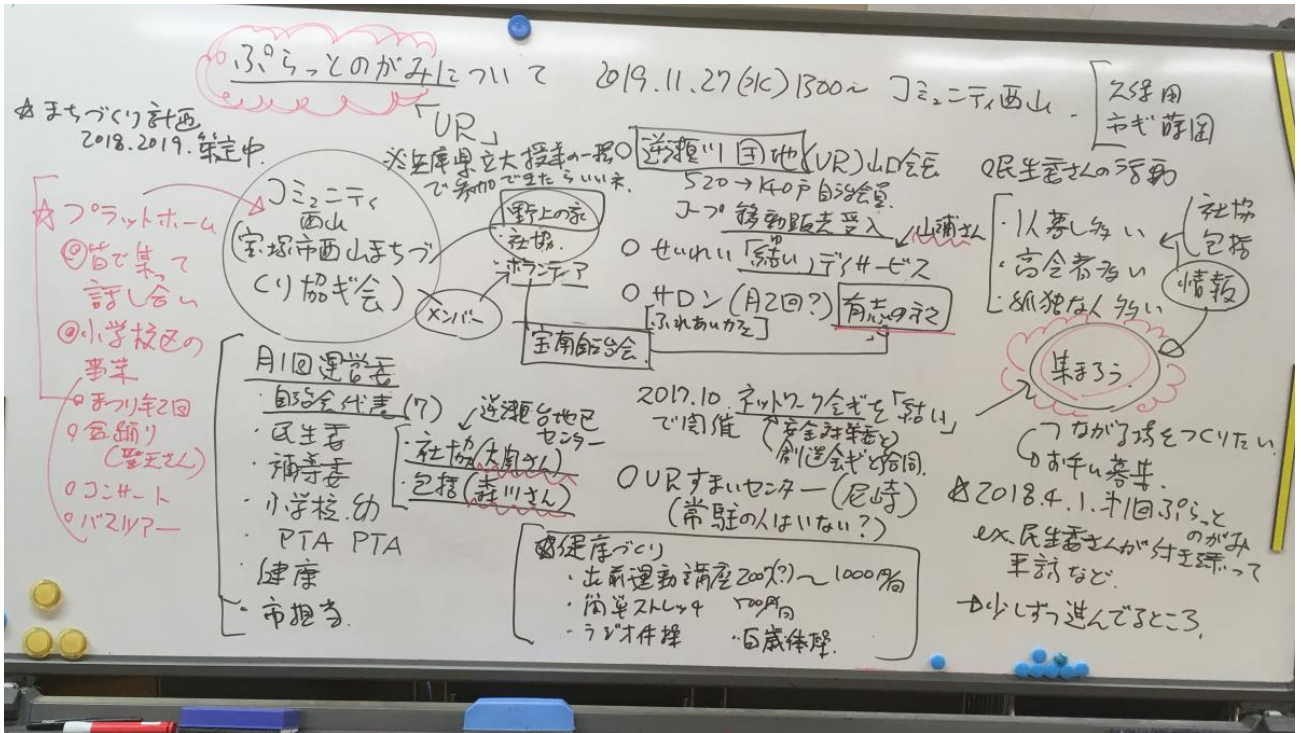 ぷらっとのがみについて 2019.11.27(水)1300〜 コミュニティ西山
久保田
市ギ
☆まちづくり計画
2018.2019.策定中.
☆プラットホーム
◎皆で集って
話し合い
◎小学校区の
事業
○まつり年2回
○盆踊り
○コンサート
○バスツアー
コミュニティ
西山
(宝塚市西山まちづ
くり協ギ会)
「UR」
※兵庫県立大授業の一括
で参加できたらいいネ.
野上の家
・社協.
・ボランティア
メンバー
宝南自治会.
月1回運営委
・自治会代表(7)
・民生委
・補導委
・小学校.幼
・PTA PTA
・健康
・市担当.
逆瀬台地区
センター
・社協(大関さん)
・包括(森川さん)
○逆瀬川団地(UR)山口会長
520→140戸自治会員.
コープ 移動販売受入
山浦さん
○せいれい「結い」デイサービス
ゆ
○サロン(月2回?)有志のネコ
[ふれあいカフェ]
2017.10.ネットワーク会ギを「結い」
で開催
安全対策委と
創造会ギと合同.
○URすまいセンター(尼崎)
(常駐の人はいない?)
☆健康づくり
・出前運動講座200(?)〜1000円/回
・簡単ストレッチ 500円/回
・ラジオ体操 ・百歳体操.
○民生委さんの活動
・1人暮し多い
・高令者多い
・孤独な人多い
社協
包括
情報
集まろう.
つながる場をつくりたい.
お手い募集.
☆2018.4.1.オ1回ぷらっと
のがみ
ex.民生委さんが付き添って
来訪など.
→少しずつ進んでるところ.